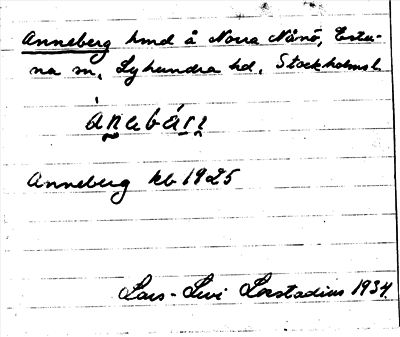 Anneberg hmd å Norra Nånö, Estu-
na sn, Lyhundra hd, Stockholms l.
Anneberg kb 1925
Lars-Levi Læstadius 1934.